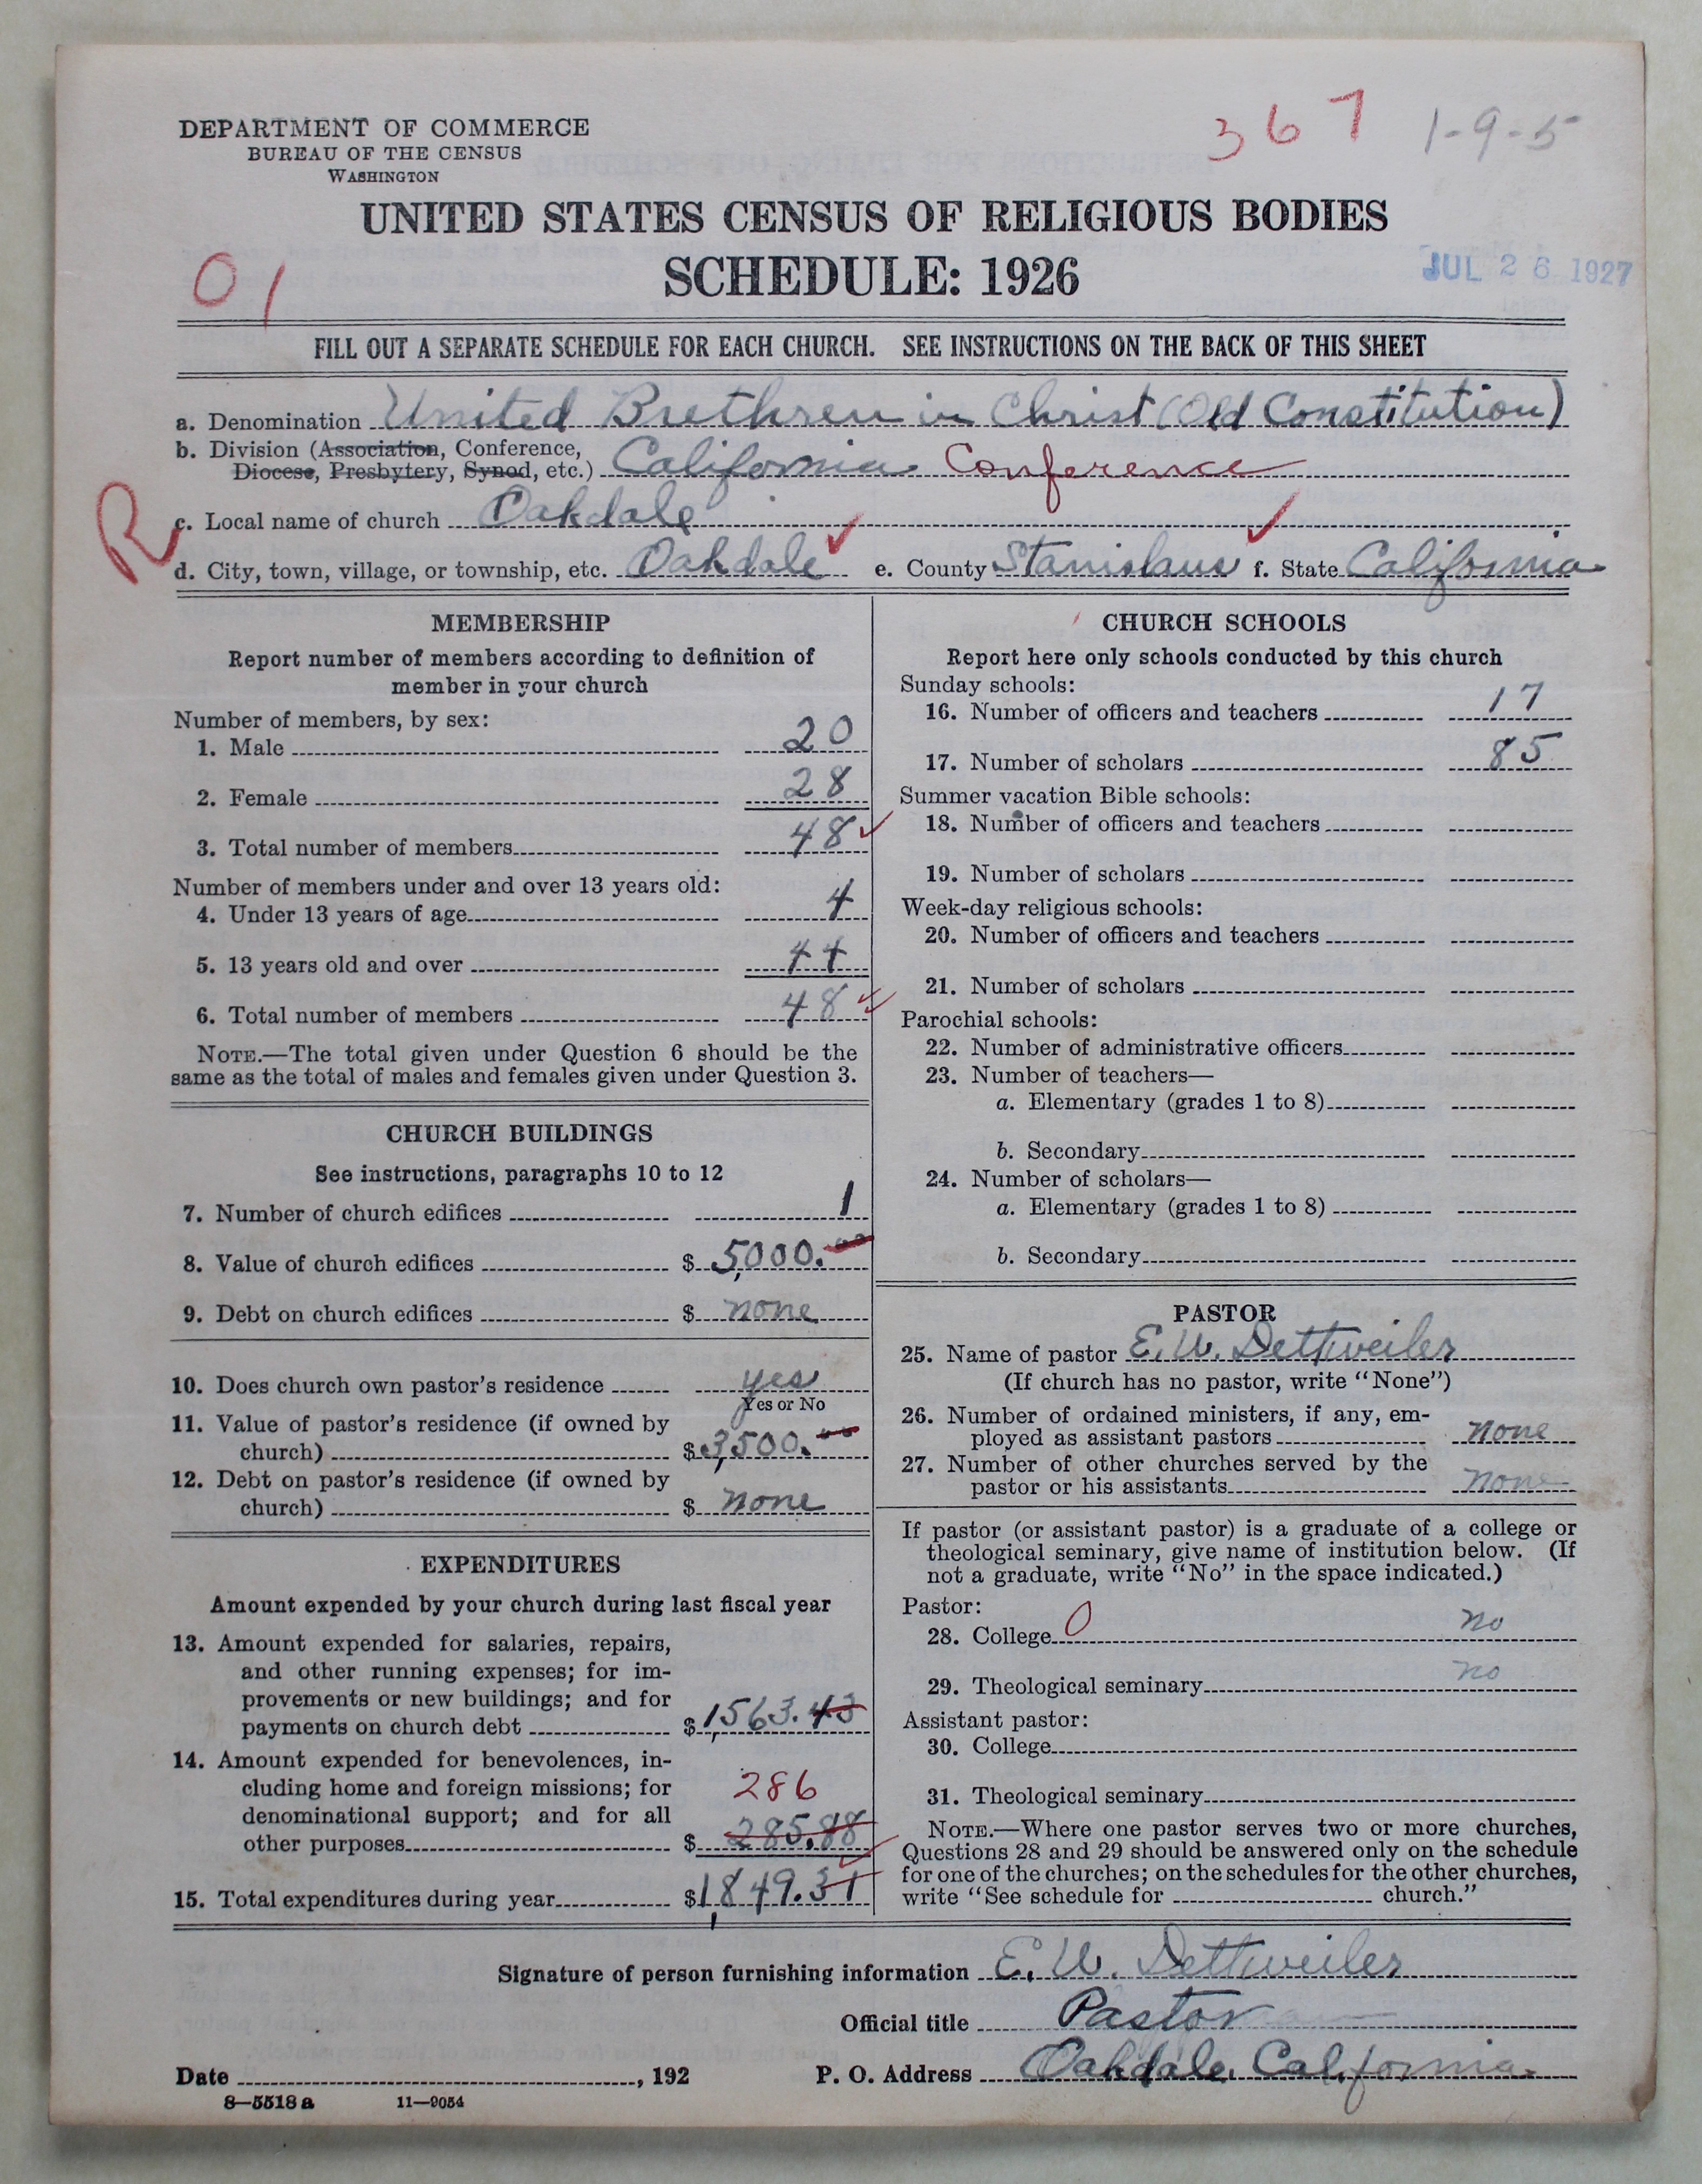 DEPARTMENT OF COMMERCE
BUREAU OF THE CENSUS
WASHINGTON
367 1-9-5
UNITED STATES CENSUS OF RELIGIOUS BODIES
SCHEDULE: 1926
01
JUL 26 1927
FILL OUT A SEPARATE SCHEDULE FOR EACH CHURCH. SEE INSTRUCTIONS ON THE BACK OF THIS SHEET
a. Denomination United Brethren in Christ (Old Constitution)
b. Division (Association, Conference,
Diocese, Presbytery, Synod, etc.) California Conference
R
c. Local name of church Oakdale
d. City, town, village, or township, etc. Oakdale e. County Stanislaus f. State California
MEMBERSHIP
Report number of members according to definition of
member in your church
Number of members, by sex:
1. Male 20
2. Female 28
3. Total number of members 48
Number of members under and over 13 years old:
4. Under 13 years of age 4
5. 13 years old and over 44
6. Total number of members 48
NOTE.—The total given under Question 6 should be the
same as the total of males and females given under Question 3.
CHURCH BUILDINGS
See instructions, paragraphs 10 to 12
7. Number of church edifices 1
8. Value of church edifices $ 5,000.00
9. Debt on church edifices $ none
10. Does church own pastor's residence yes
Yes or No
11. Value of pastor's residence (if owned by
church) $ 3,500.00
12. Debt on pastor's residence (if owned by
church) $ none
EXPENDITURES
Amount expended by your church during last fiscal year
13. Amount expended for salaries, repairs,
and other running expenses; for im-
provements or new buildings; and for
payments on church debt $ 1,563.43
14. Amount expended for benevolences, in-
cluding home and foreign missions; for 286
denominational support; and for all
other purposes $ 285.88
15. Total expenditures during year $ 1,849.31
CHURCH SCHOOLS
Report here only schools conducted by this church
Sunday schools:
16. Number of officers and teachers 17
17. Number of scholars 85
Summer vacation Bible schools:
18. Number of officers and teachers
19. Number of scholars
Week-day religious schools:
20. Number of officers and teachers
21. Number of scholars
Parochial schools:
22. Number of administrative officers
23. Number of teachers—
a. Elementary (grades 1 to 8)
b. Secondary
24. Number of scholars—
a. Elementary (grades 1 to 8)
b. Secondary
PASTOR
25. Name of pastor E. W. Dettweiler
(If church has no pastor, write "None")
26. Number of ordained ministers, if any, em-
ployed as assistant pastors none
27. Number of other churches served by the
pastor or his assistants none
If pastor (or assistant pastor) is a graduate of a college or
theological seminary, give name of institution below. (If
not a graduate, write "No" in the space indicated.)
Pastor:
28. College 0 no
29. Theological seminary no
Assistant pastor:
30. College
31. Theological seminary
NOTE.—Where one pastor serves two or more churches,
Questions 28 and 29 should be answered only on the schedule
for one of the churches; on the schedules for the other churches,
write "See schedule for church."
Signature of person furnishing information E. W. Dettweiler
Official title Pastor
Date , 192 P. O. Address Oakdale, California
8—5518 a 11—9054